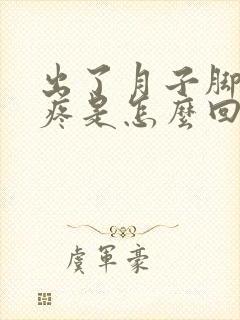 出了月子脚
疼是怎麼回
虞军豪